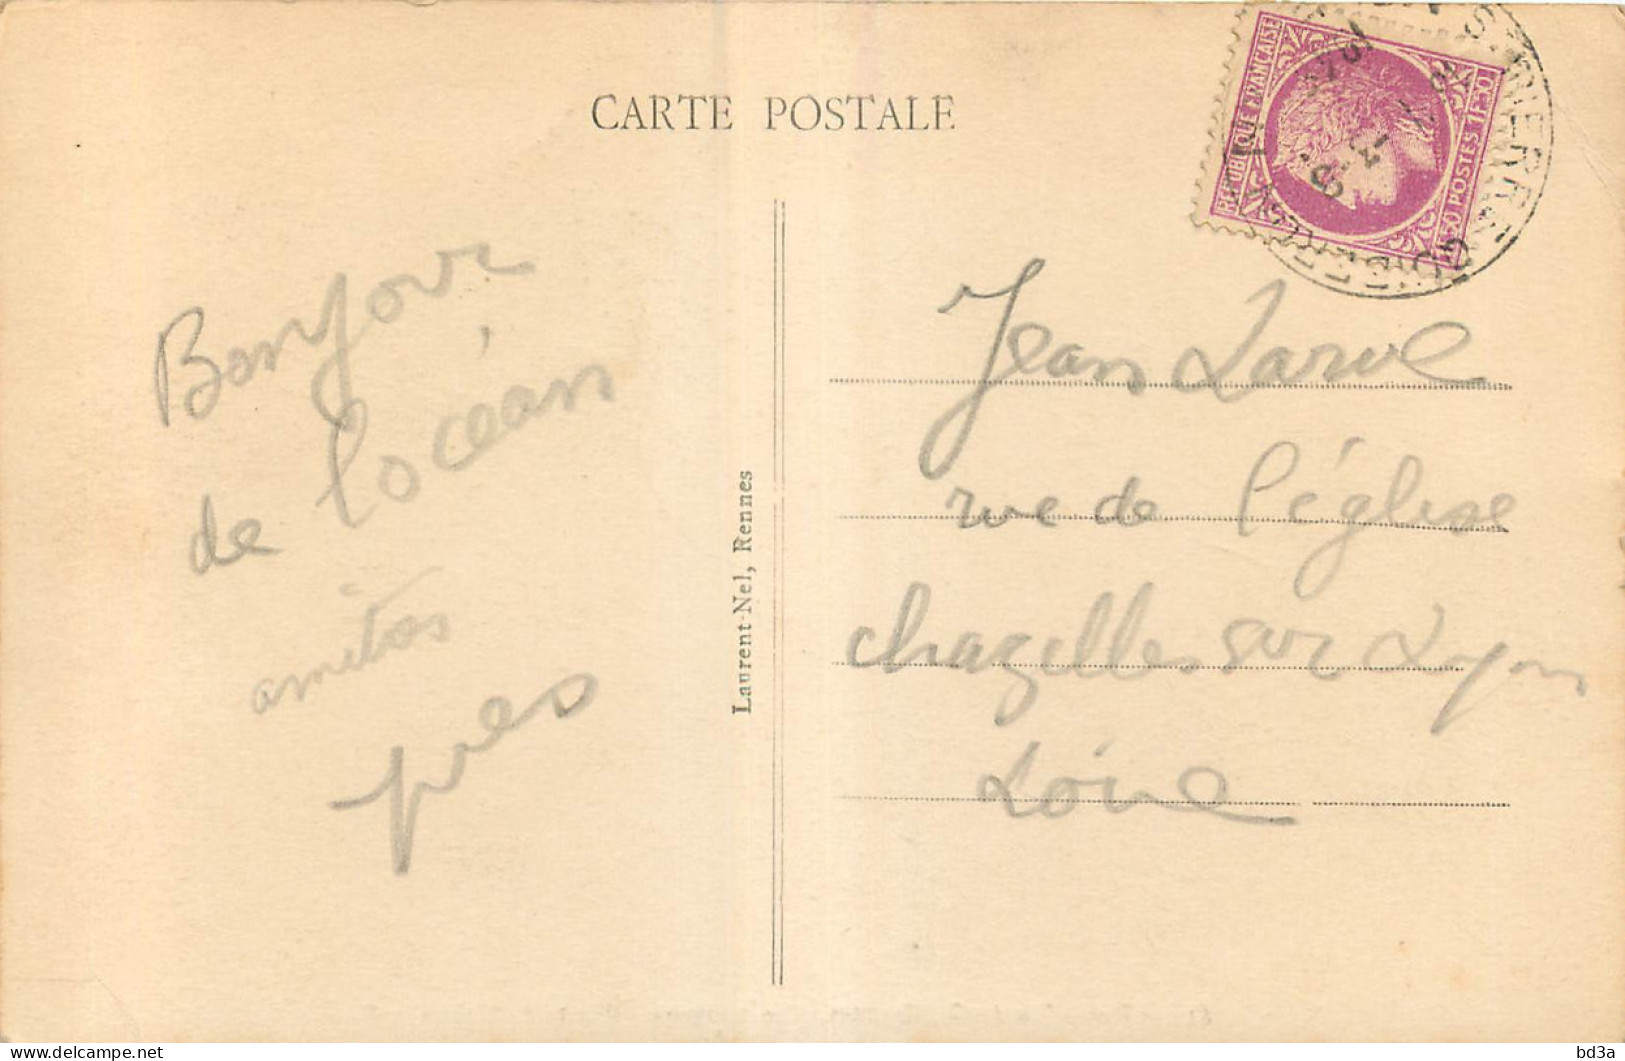 CARTE POSTALE
RÉPUBLIQUE FRANÇAISE
1F50 POSTES 1F50
Bonjour
de l'océan
amitiés
Laurent-Nel, Rennes
Jean Larue
rue de l'église
Chazelles sur Lyon
Loire
bd3a